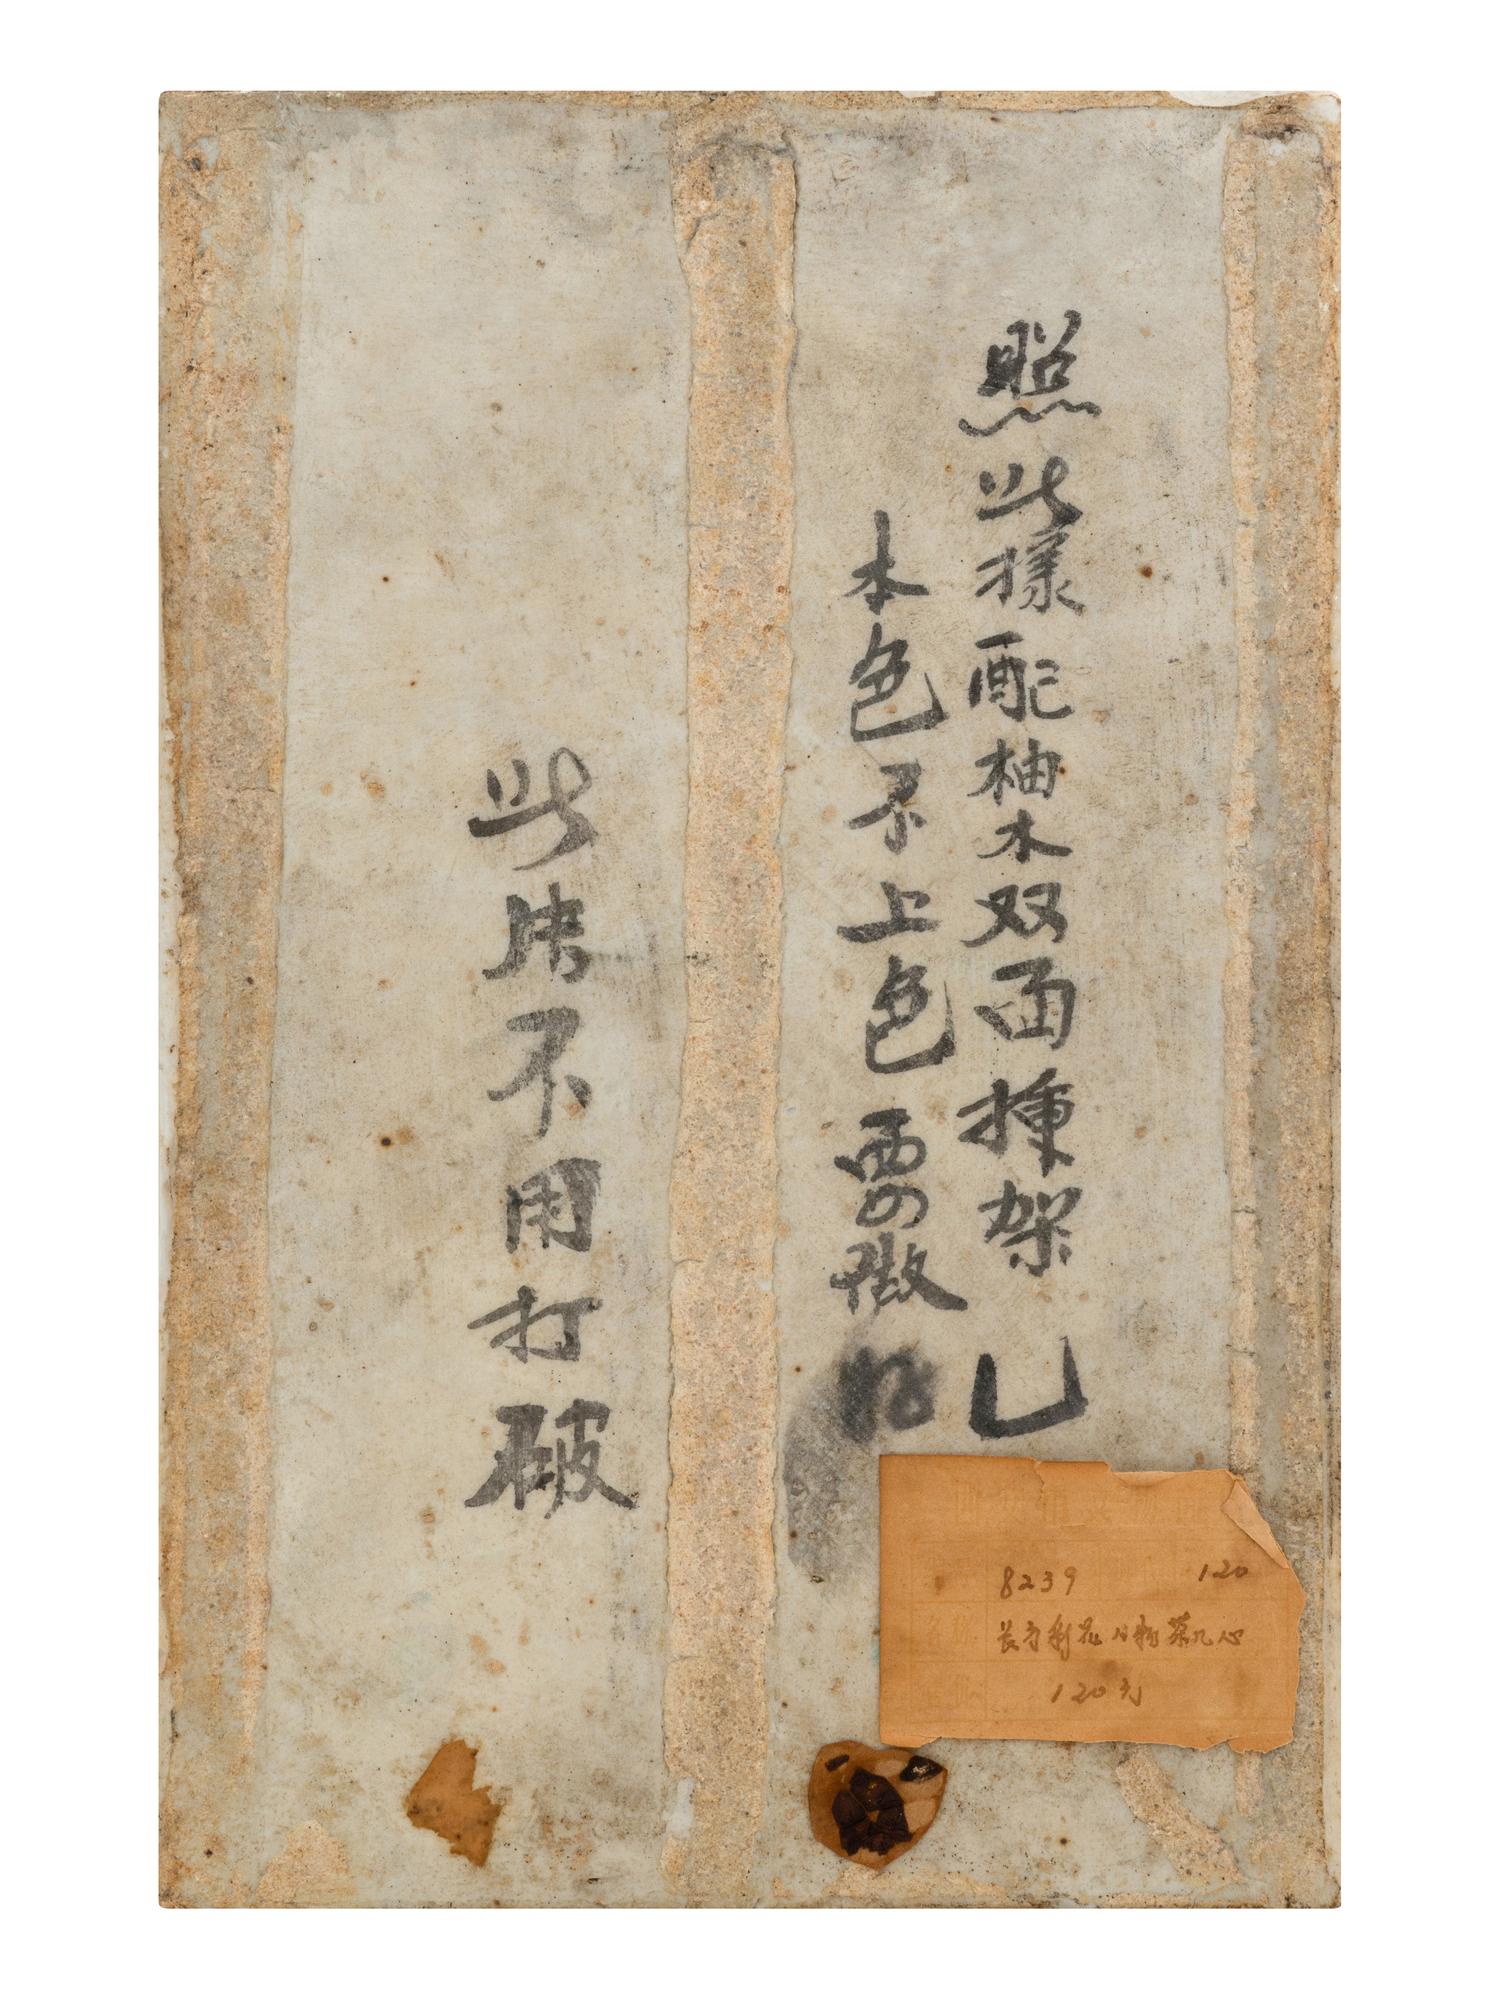 照此樣配柚木双面插架
本色不上色要做好
此片不用打破
8239 120
长方粉花 茶几心
120元